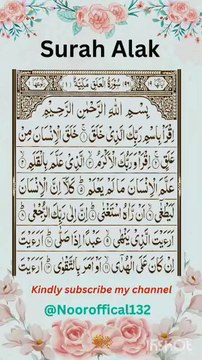 Surah Alak
سُوْرَةُ الْعَلَقِ مَكِّيَّةٌ
بِسْمِ اللّٰهِ الرَّحْمٰنِ الرَّحِيْمِ
اِقْرَاْ بِاسْمِ رَبِّكَ الَّذِيْ خَلَقَ خَلَقَ الْاِنْسَانَ مِنْ
عَلَقٍ اِقْرَاْ وَرَبُّكَ الْاَكْرَمُ الَّذِيْ عَلَّمَ بِالْقَلَمِ
عَلَّمَ الْاِنْسَانَ مَا لَمْ يَعْلَمْ كَلَّآ اِنَّ الْاِنْسَانَ
لَيَطْغٰٓى اَنْ رَّاٰهُ اسْتَغْنٰى اِنَّ اِلٰى رَبِّكَ الرُّجْعٰى اَرَءَيْتَ
الَّذِيْ يَنْهٰى عَبْدًا اِذَا صَلّٰى اَرَءَيْتَ
اِنْ كَانَ عَلَى الْهُدٰٓى اَوْ اَمَرَ بِالتَّقْوٰى اَرَءَيْتَ
Kindly subscribe my channel
@Nooroffical132